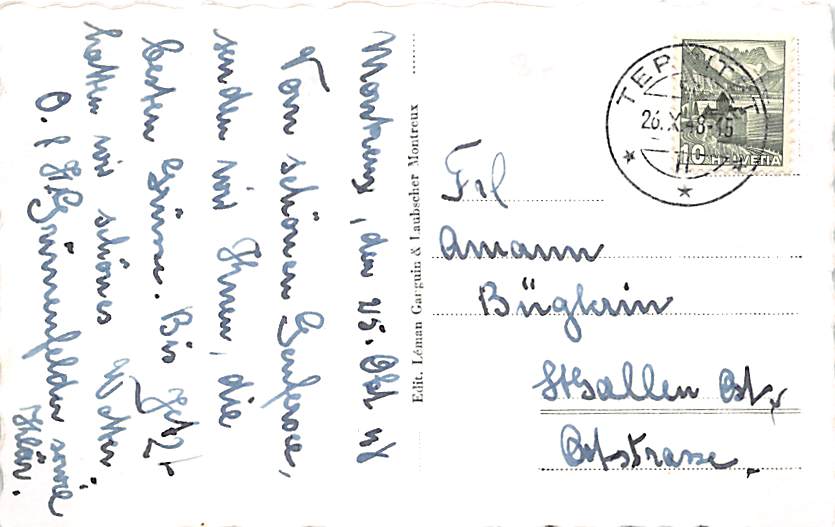 Montreux, den 25. Okt 48
Vom schönen Genfersee,
senden wir Ihnen, die
besten Grüsse. Bis jetzt
hatten wir schönes Wetter.
O. & H. Grünenfelder sowie
Klär.
Edit. Léman Garguin & Laubscher Montreux
TERRITET
26.X.48-15
10 HELVETIA
Frl
Amann
Büglerin
St Gallen Ost
Ostrasse